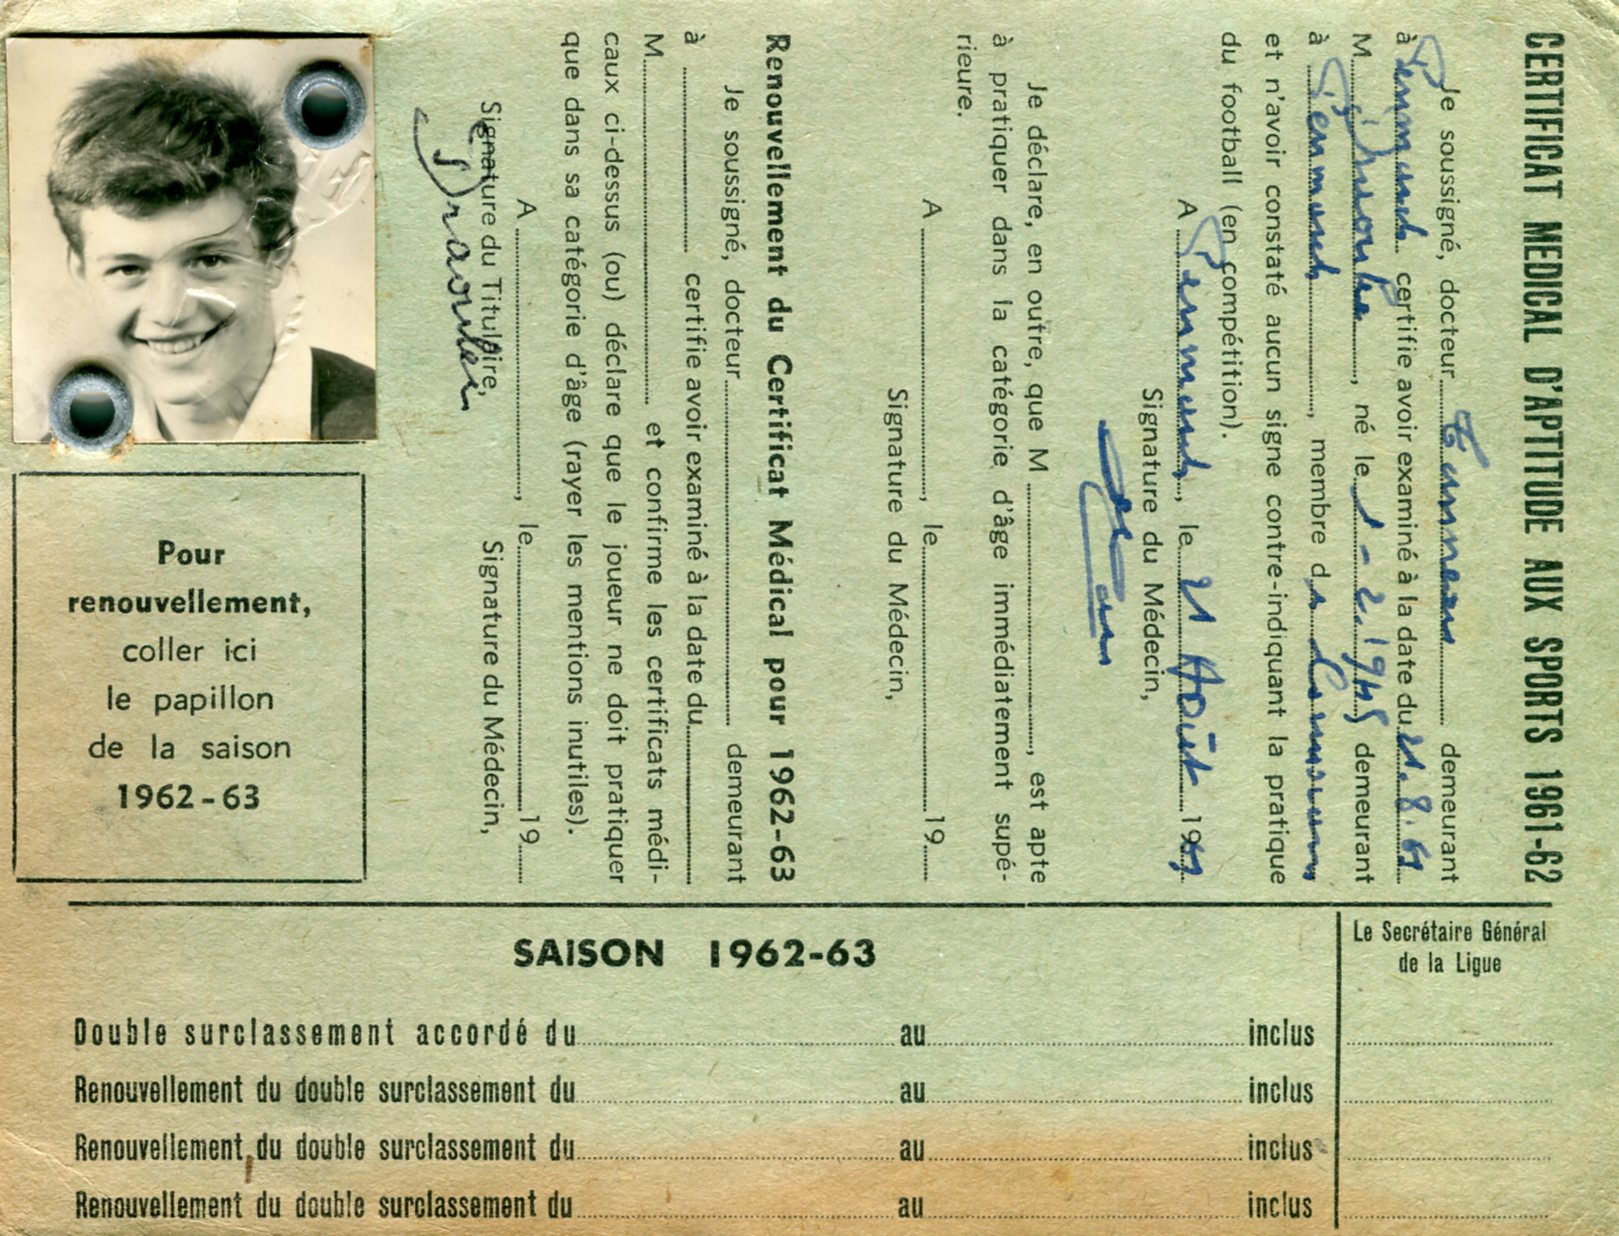 CERTIFICAT MEDICAL D'APTITUDE AUX SPORTS 1961-62
Je soussigné, docteur demeurant
à certifie avoir examiné à la date du 21.8.61
M. , né le 1-2.1945 demeurant
à , membre d
et n'avoir constaté aucun signe contre-indiquant la pratique
du football (en compétition).
A , le 21 Août 1961
Signature du Médecin,
Je déclare, en outre, que M , est apte
à pratiquer dans la catégorie d'âge immédiatement supé-
rieure.
A , le 19
Signature du Médecin,
Renouvellement du Certificat Médical pour 1962-63
Je soussigné, docteur demeurant
à certifie avoir examiné à la date du
M. et confirme les certificats médi-
caux ci-dessus (ou) déclare que le joueur ne doit pratiquer
que dans sa catégorie d'âge (rayer les mentions inutiles).
A , le 19
Signature du Titulaire, Signature du Médecin,
Pour
renouvellement,
coller ici
le papillon
de la saison
1962-63
SAISON 1962-63
Le Secrétaire Général
de la Ligue
Double surclassement accordé du au inclus
Renouvellement du double surclassement du au inclus
Renouvellement du double surclassement du au inclus
Renouvellement du double surclassement du au inclus